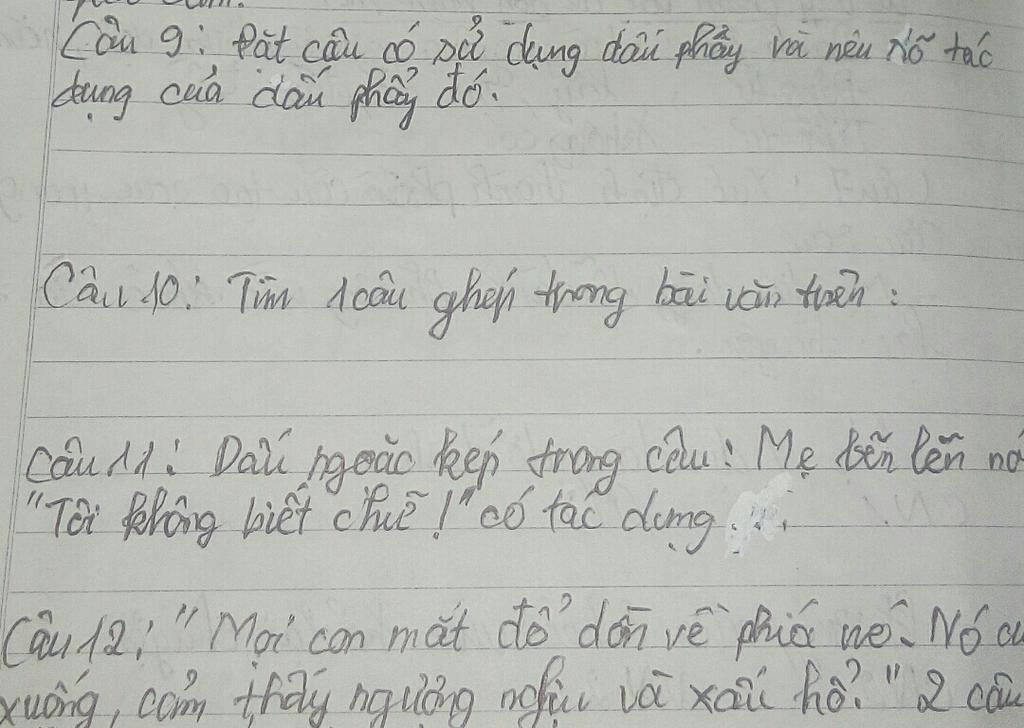 Câu 9: Đặt câu có sử dụng dấu phẩy và nêu rõ tác
dụng của dấu phẩy đó.
Câu 10: Tìm 1 câu ghép trong bài văn trên:
Câu 11: Dấu ngoặc kép trong câu: Mẹ bẽn lẽn nó
"Tôi không biết chữ!" có tác dụng...
Câu 12: "Mọi con mắt đổ dồn về phía nó. Nó
xuống, cảm thấy ngượng nghịu và xấu hổ." 2 câu